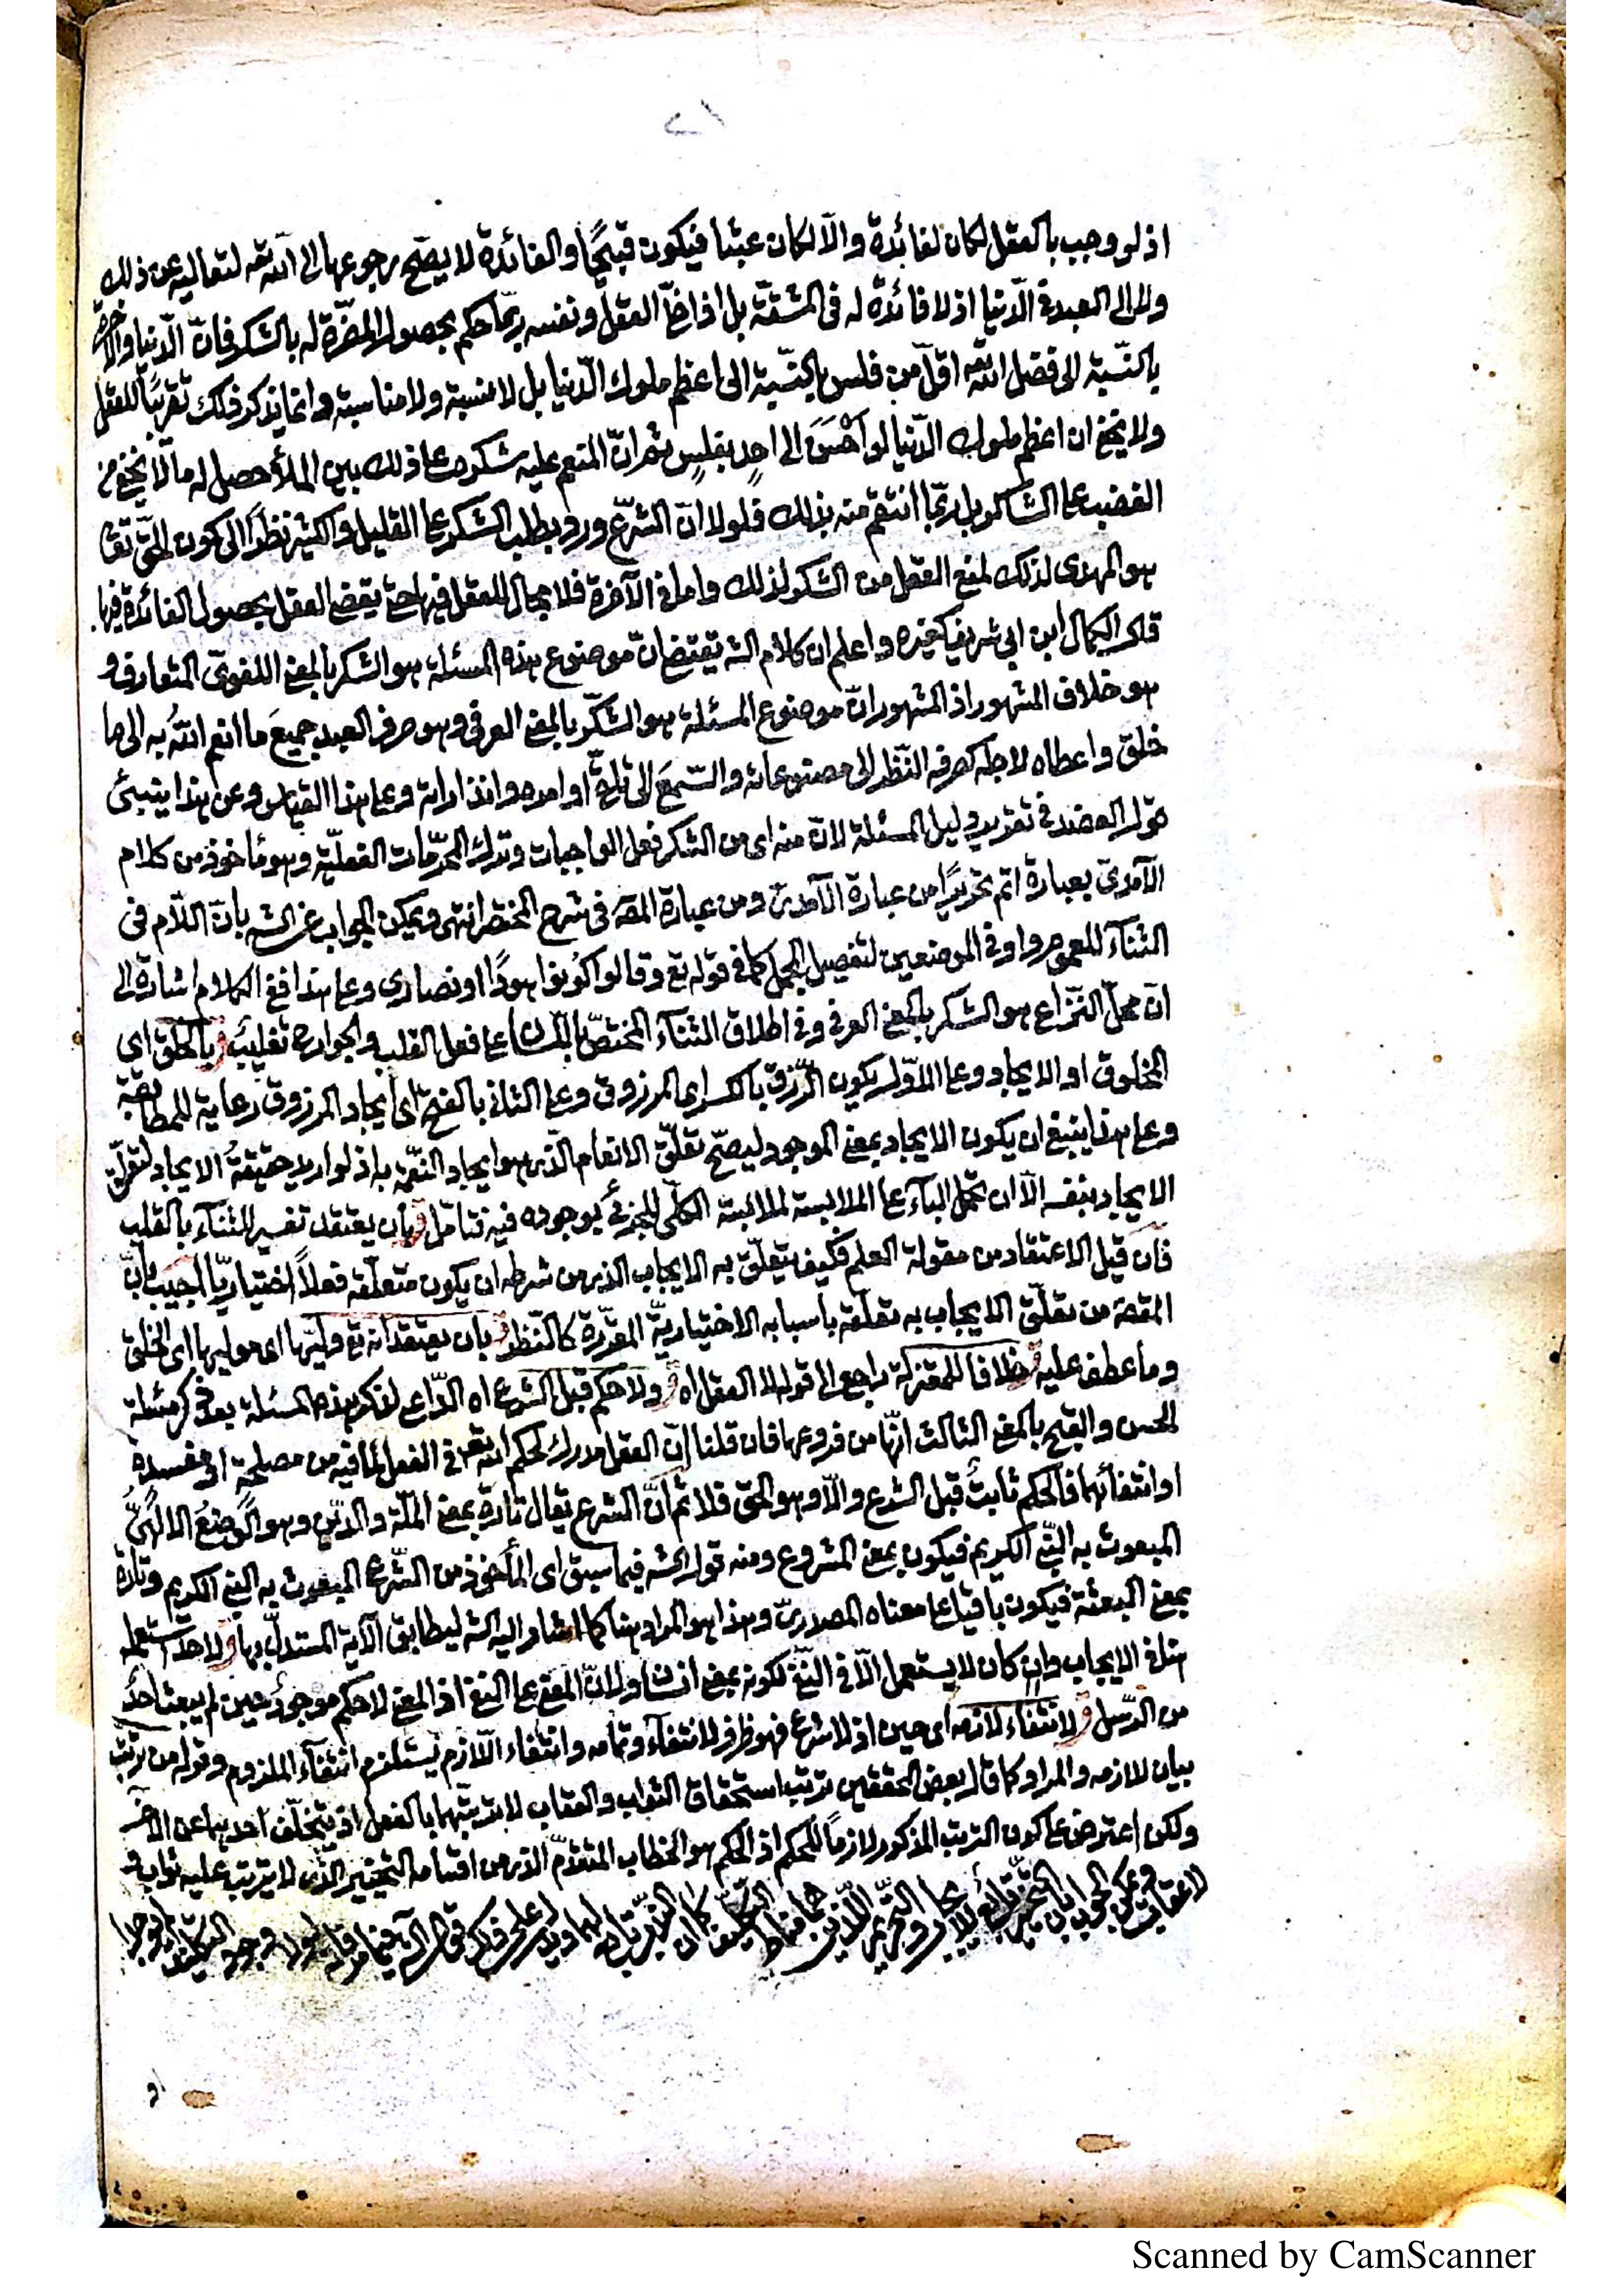 ٢١
اذ لو وجب بالعقل لكان لفائدة والّا لكان عبثا فيكون قبيحًا والفائدة لا يصّح رجوعها الى الله تعه لتعاليه عن ذلك
ولا الى العبد في الدّنيا اذ لا فائدة له في المشقّة بل اذا خلّا العقل ونفسه ربّما حكم بحصول المضرّة له بالشكر فانّ الدّنيا والآخرة
بالنسّبة الى فضل الله تعه اقلّ من فلس بالنسّبة الى اعظم ملوك الدّنيا بل لا نسبة ولا مناسبة وانما يذكر ذلك تقريبًا للعقل
ولا يخفى ان اعظم ملوك الدّنيا لو اَحْسَنَ الى احدٍ بفلسٍ ثم انّ المنعم عليه شكره على ذلك بين الملأ حصل له ما لا يخفى من
الغضب على الشاكر بل ربّما انتقم منه بذلك فلولا انّ الشرّع ورد بطلب الشكر على القليل والكثير نظرًا الى كون الحقّ تعا
هو المهدى لذلك لمنع العقل من الشكر لذلك واما في الآخرة فلا مجال للعقل فيها حتى يقضى العقل بحصول الفائدة فيها.
قال الكمال ابن ابي شريف كغيره واعلم ان كلام الشه يقتضى انّ موضوع هذه المسئلة هو الشكر بالمعنى اللغوىّ المتعارف و
هو خلاف المشهور اذ المشهور انّ موضوع المسئلة هو الشكر بالمعنى العرفى وهو صرف العبد جميعَ ما انعم اللهُ به الى ما
خلق واعطاه لاجله كصرفه النّظر الى مصنوعاته والسّمعَ الى تلقى اوامره وانذاراته وعلى هذا القياس وعن هذا ينبئ
قول العضد في تقرير دليل المسئلة لانّ منه اى من الشكر فعل الواجبات وترك المحرّمات العقليّة وهو مأخوذ من كلام
الآمدىّ بعبارة اتم تحريرًا من عبارة الآمدىّ ومن عبارة المصّه في شرح المختصر انتهى ويمكن الجواب عن الشه بانّ اللّام فى
الثنآء للعموم واو في الموضعين لتفصيل المجمل كما في قوله تع وقالوا كونوا هودًا او نصارى وعلى هذا ففى الكلام اشارة الى
انّ محلّ النّزاع هو الشكر بالمعنى العرفى وفي اطلاق الثنآء المختصّ باللّسان على فعل القلب والجوارح تغليب ق بالخلق اى
المخلوق او الايجاد وعلى الاوّل يكون الرّزق بالكسر اى المرزوق وعلى الثانى بالفتح اى ايجاد المرزوق رعاية للمطابقة
وعلى هذا ينبغى ان يكون الايجاد بمعنى الموجود ليصحّ تعلّق الانعام الّذى هو ايجاد النعّمة به اذ لو اريد حقيقةُ الايجاد لتعلّق
الايجاد بنفسه الّا ان تحمل البآء على الملابسة لملابسة الكلّى للجزئى بوجوده فيه فتأمّل ق بأن يعتقد تفسير للثنآء بالقلب
فان قيل الاعتقاد من مقولة العلم فكيف يتعلّق به الايجاب الذى من شرطه ان يكون متعلّقه فعلاً اختياريّا اجيب بانّ
المقصه من تعلّق الايجاب به تعلّقه بأسبابه الاختياريّة المقرّرة كالنّظر ق بان يعتقد انه تع وليّها اى موليها اى الخلق
وما عطف عليه ق خلافا للمعتزلة راجع الى قوله لا العقل اه ق ولا حكم قبل الشرع اه الدّاعى لذكر هذه المسئلة بعد ذكر مسئلة
الحسن والقبح بالمعنى الثالث انّها من فروعها فان قلنا انّ العقل مدرك لحكم الله تعه في الفعل لما فيه من مصلحة او مفسدة
او انتفائهما فالحكم ثابتٌ قبل الشرع والّا وهو الحق فلا ثم انّ الشرع يقال تارة بمعنى الملّة والدّين وهو الوضعُ الالٰهىّ
المبعوث به النّبى الكريم فيكون بمعنى المشروع ومنه قول الشه فيما سبق اى المأخوذ من الشّرع المبعوث به النبى الكريم وتارة
بمعنى البعثة فيكون باقيا على معناه المصدرىّ وهذا هو المراد هنا كما اشار اليه الشه ليطابق الآية المستدلّ بها ق لاحد استعمله
هنا في الايجاب وان كان لا يستعمل الّا فى النفى لكونه بمعنى انسان او لانّ المعنى على النفى اذ المعنى لا حكم موجودٌ حين لم يبعث احدٌ
من الرّسل ق لانتفاء لازمه اى حين اذ لا شرع فهو ظرف للانتفآء وتمامه وانتفاء اللّازم يستلزم انتفآء الملزوم وقوله من ترتّب
بيان للازمه والمراد كما قال بعض المحققين ترتّب استحقاق الثواب والعقاب لا ترتّبهما بالفعل اذ يتخلّف احدهما عن الآخر
ولكن اعترض على كون الترتب المذكور لازمًا للحكم اذ الحكم هو الخطاب المتقدّم الذى من اقسامه التخيير الّذى لا يترتب عليه ثواب و
لا عقاب ويمكن الجواب بان التخيير تابع للايجاب والتحريم اللّذين هما مناط التكليف
او
Scanned by CamScanner